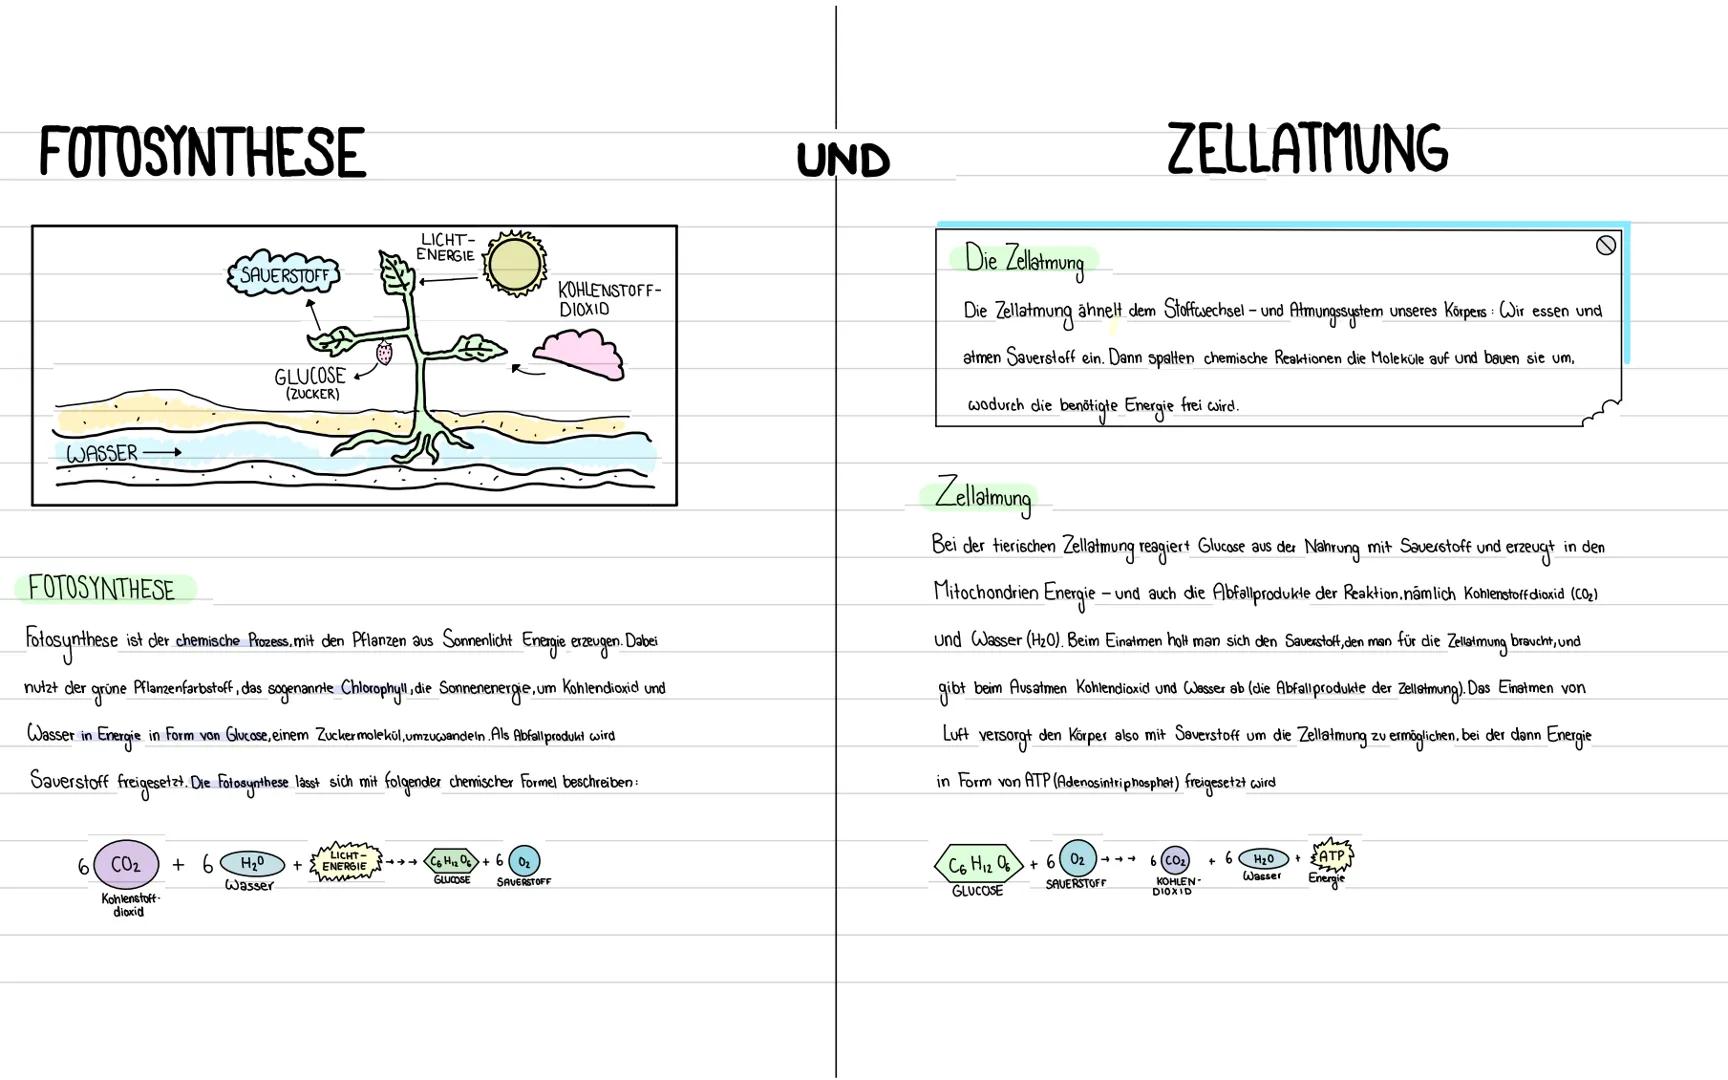 FOTOSYNTHESE
UND
ZELLATMUNG
LICHT-
ENERGIE
SAUERSTOFF
KOHLENSTOFF-
DIOXID
GLUCOSE
(ZUCKER)
WASSER
FOTOSYNTHESE
Fotosynthese ist der chemische Prozess, mit den Pflanzen aus Sonnenlicht Energie erzeugen. Dabei
nutzt der grüne Pflanzenfarbstoff, das sogenannte Chlorophyll, die Sonnenenergie, um Kohlendioxid und
Wasser in Energie in Form von Glucose, einem Zuckermolekül, umzuwandeln. Als Abfallprodukt wird
Sauerstoff freigesetzt. Die Fotosynthese lässt sich mit folgender chemischer Formel beschreiben:
6 CO₂ + 6 H₂O + LICHT- ENERGIE → → → C₆H₁₂O₆ + 6 O₂
Kohlenstoff-
dioxid
Wasser
GLUCOSE
SAUERSTOFF
Die Zellatmung
Die Zellatmung ähnelt dem Stoffwechsel - und Atmungssystem unseres Körpers: Wir essen und
atmen Sauerstoff ein. Dann spalten chemische Reaktionen die Moleküle auf und bauen sie um,
wodurch die benötigte Energie frei wird.
Zellatmung
Bei der tierischen Zellatmung reagiert Glucose aus der Nahrung mit Sauerstoff und erzeugt in den
Mitochondrien Energie - und auch die Abfallprodukte der Reaktion, nämlich Kohlenstoffdioxid (CO₂)
und Wasser (H₂O). Beim Einatmen holt man sich den Sauerstoff, den man für die Zellatmung braucht, und
gibt beim Ausatmen Kohlendioxid und Wasser ab (die Abfallprodukte der Zellatmung). Das Einatmen von
Luft versorgt den Körper also mit Sauerstoff um die Zellatmung zu ermöglichen, bei der dann Energie
in Form von ATP (Adenosintriphosphat) freigesetzt wird
C₆H₁₂O₆ + 6 O₂ → → → 6 CO₂ + 6 H₂O + ATP
GLUCOSE
SAUERSTOFF
KOHLEN-
DIOXID
Wasser
Energie